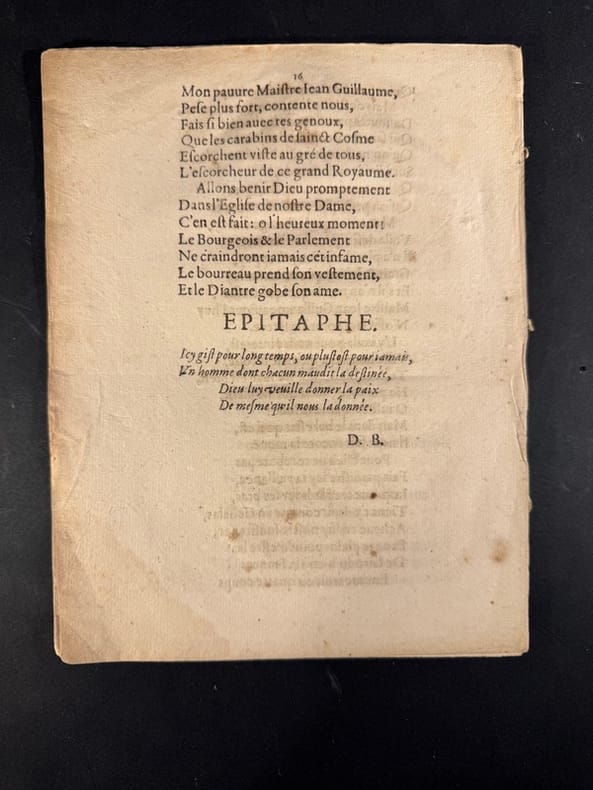 16
Mon pauure Maiſtre Iean Guillaume,
Peſe plus fort, contente nous,
Fais ſi bien auec tes genoux,
Que les carabins de ſainct Coſme
Eſcorchent viſte au gré de tous,
L'eſcorcheur de ce grand Royaume.
Allons benir Dieu promptement
Dans l'Egliſe de noſtre Dame,
C'en eſt fait: o l'heureux moment!
Le Bourgeois & le Parlement
Ne craindront iamais cét infame,
Le bourreau prend ſon veſtement,
Et le Diantre gobe ſon ame.
EPITAPHE.
Icy giſt pour long temps, ou pluſtoſt pour iamais,
Vn homme dont chacun maudit la deſtinée,
Dieu luy veuille donner la paix
De meſme qu'il nous la donnée.
D. B.